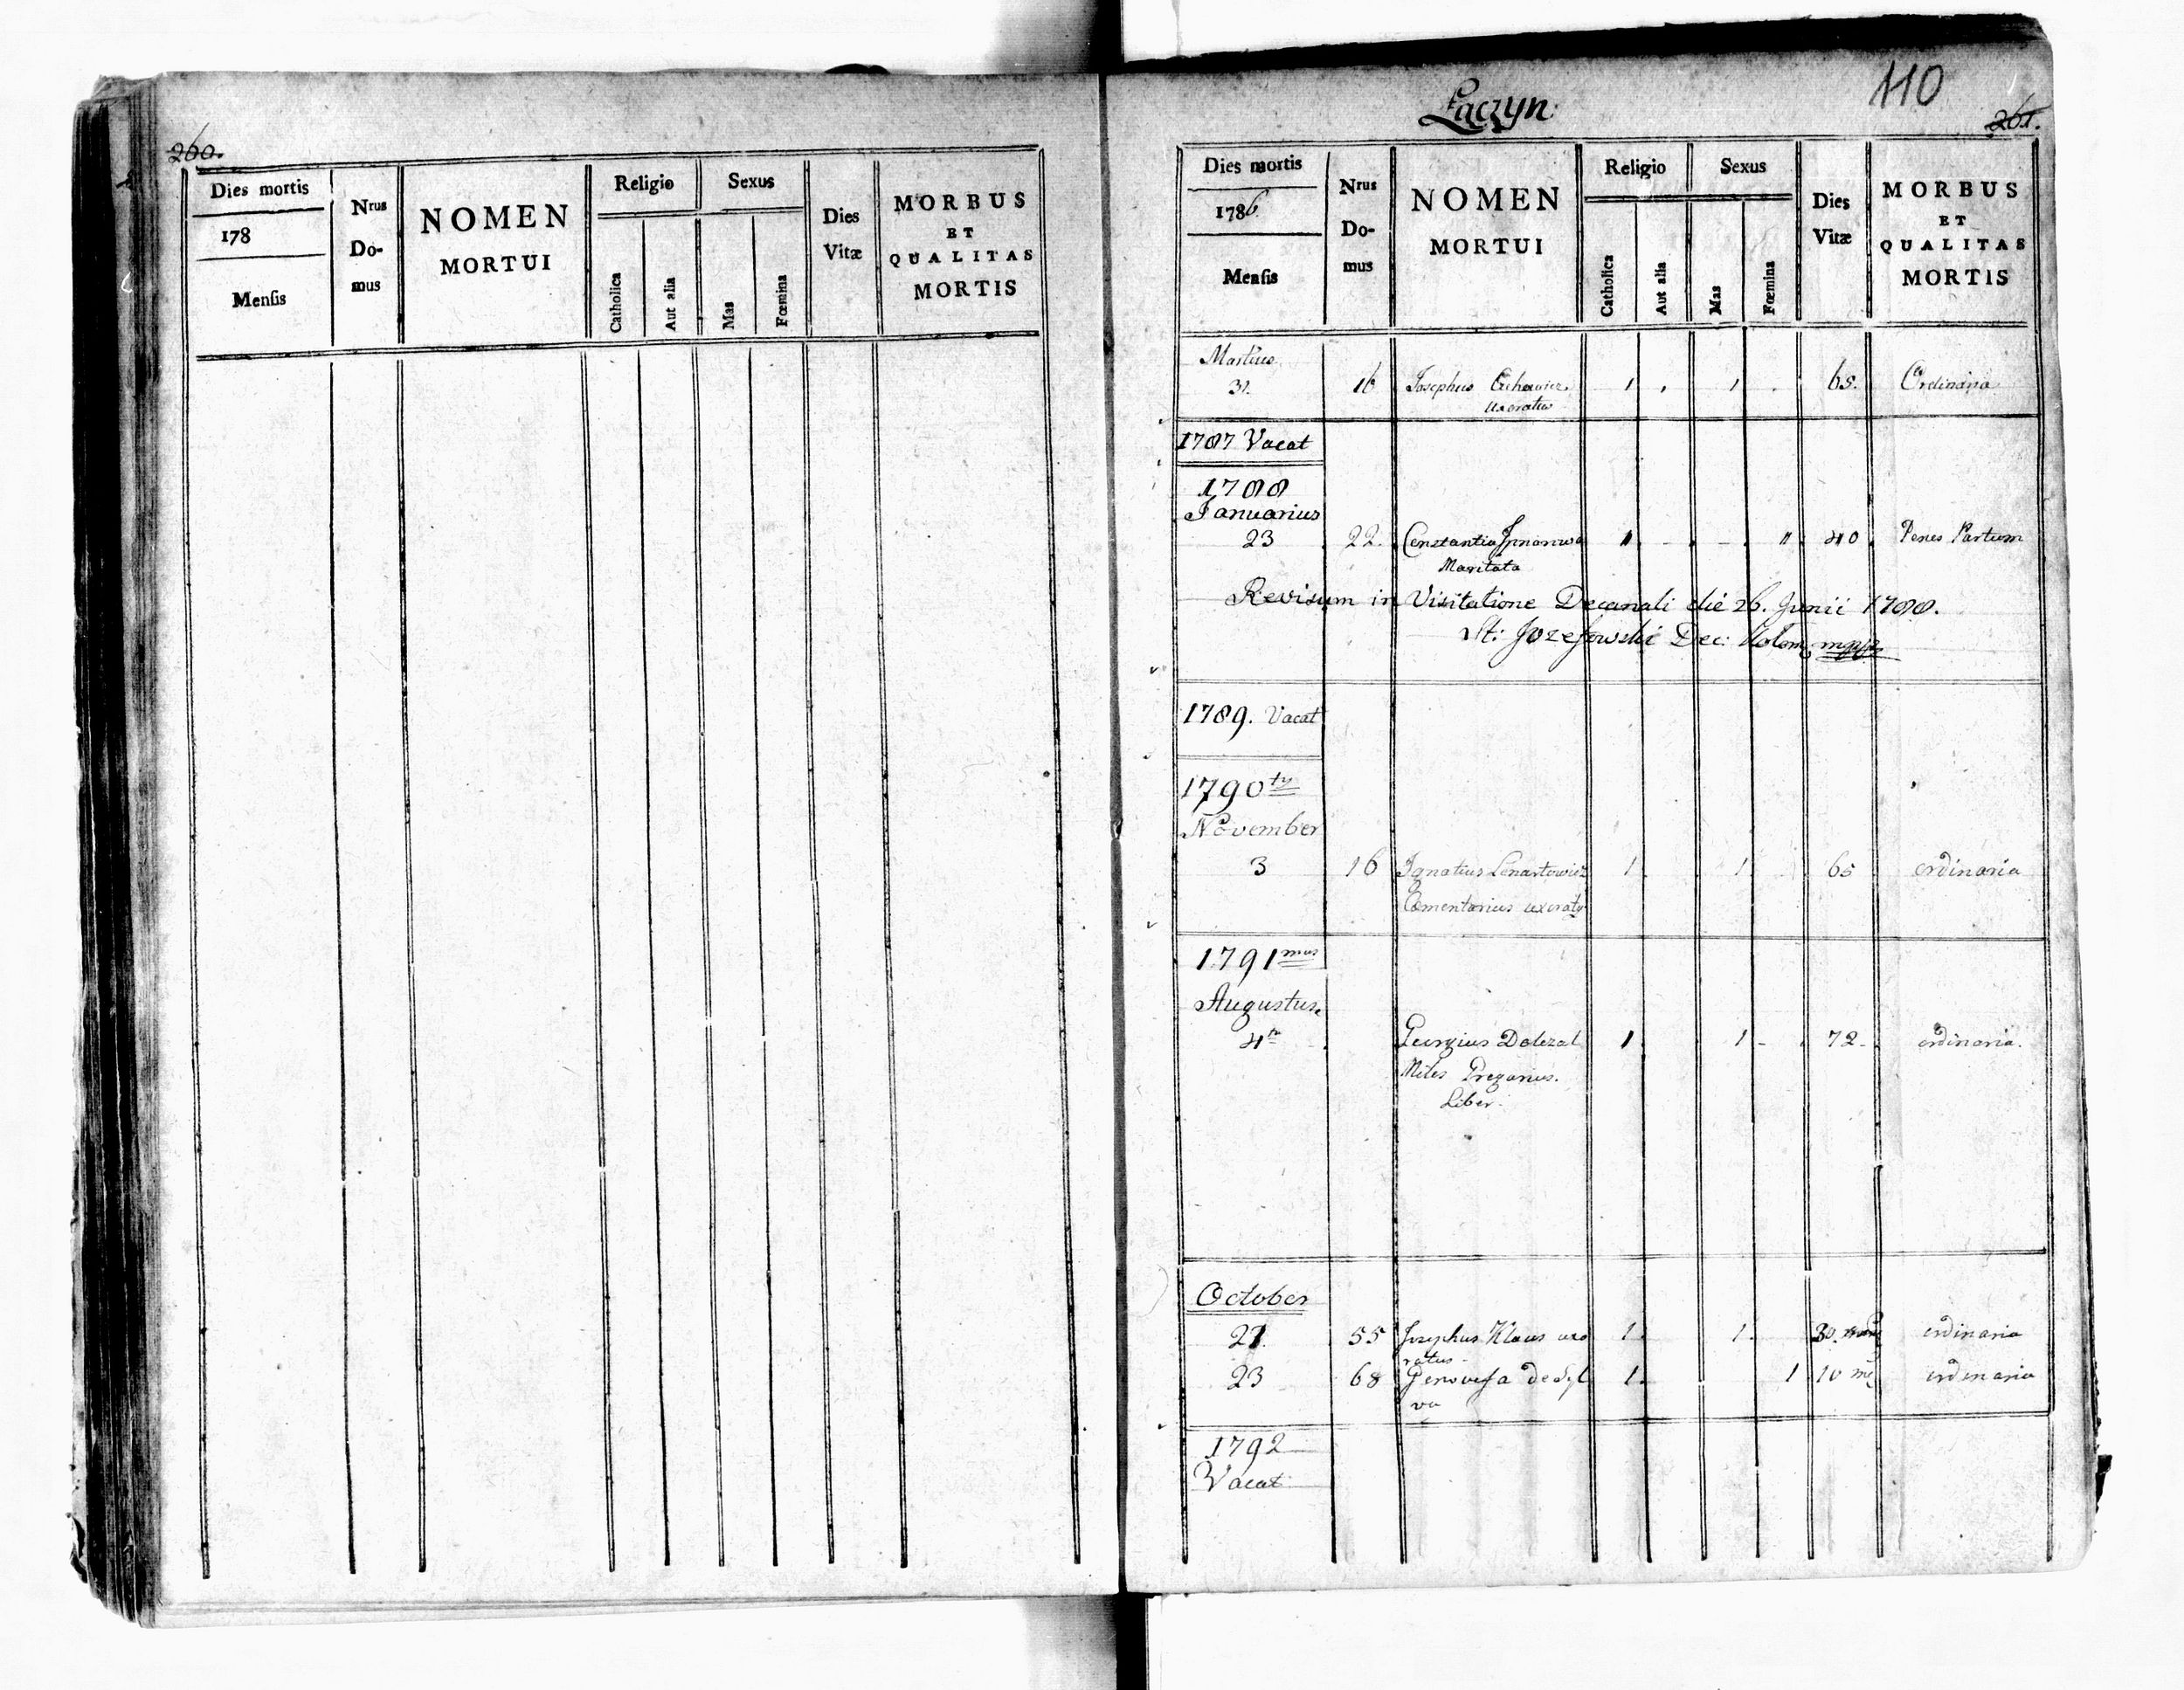 260.
Dies mortis
178
Mensis
Nrus
Do-
mus
NOMEN
MORTUI
Religio
Catholica
Aut alia
Sexus
Mas
Fœmina
Dies
Vitæ
MORBUS
ET
QUALITAS
MORTIS
Łączyn
110
261.
Dies mortis
1786.
Mensis
Nrus
Do-
mus
NOMEN
MORTUI
Religio
Catholica
Aut alia
Sexus
Mas
Fœmina
Dies
Vitæ
MORBUS
ET
QUALITAS
MORTIS
Martius
31. 16 Josephus 1 1 65. Ordinaria
uxoratus
1787 Vacat
1788
Januarius
23 22. Constantia 1 1 40 Penes Partum
Maritata
Revisum in Visitatione Decanali die 26. Junii 1788.
St: Jozefowski Dec: Kolom: mppr
1789. Vacat
1790ty
November
3 16 Ignatius Lenartowicz 1 1 65 ordinaria
Cementarius uxoraty
1791mus
Augustus
4ta Georgius Dolezal 1 1 72 ordinaria.
Miles Gregarius.
Liber.
October
21. 55 Josephus Klaus uxo 1. 1. 30. ordinaria
ratus
23 68 Genovefa de Syl 1. 1 10 ordinaria
va
1792
Vacat